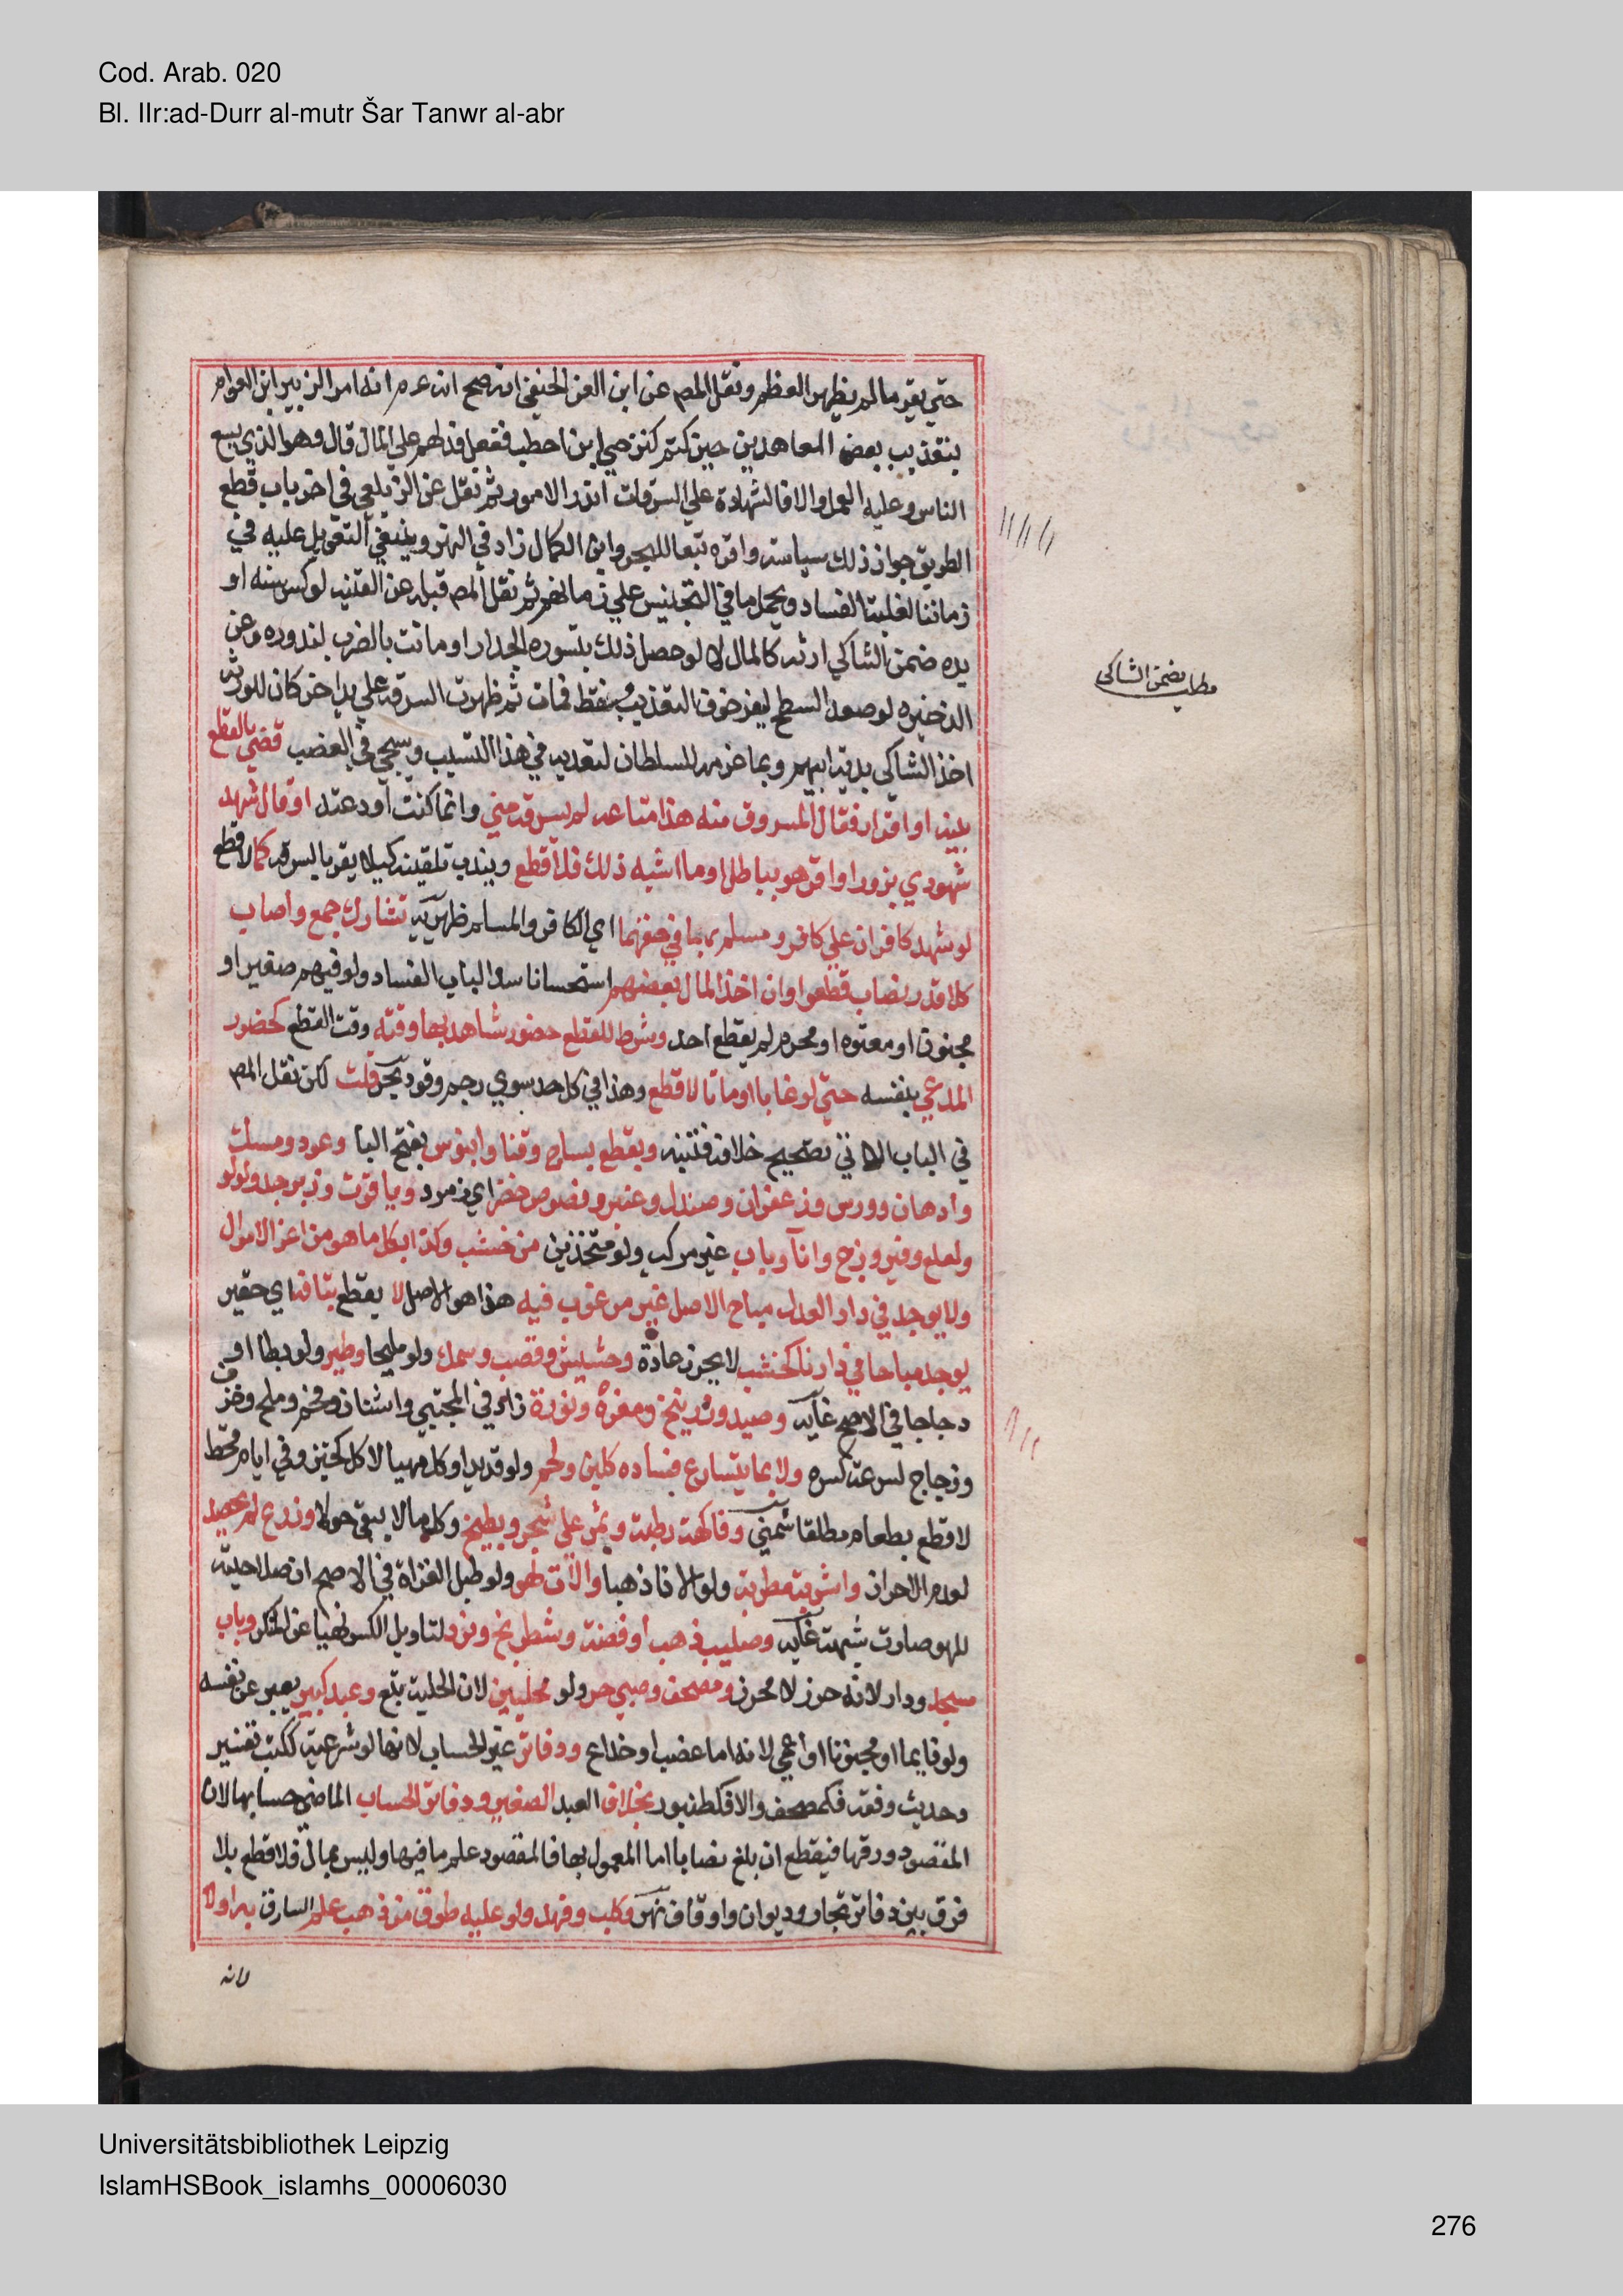 Cod. Arab. 020
Bl. IIr:ad-Durr al-mutr Šar Tanwr al-abr
حتى يقر ما لم يظهر العظم ونقل المص عن ابن العز الحنفي انه صح انه عم انه امر الزبير ابن العوام
بتعذيب بعض المعاهدين حين كتم كنز حيي ابن اخطب ففعل فدلهم على المال قال وهو الذي يسع
الناس وعليه العمل والا فالشهادة على السرقات اندر الامور ثم نقل عن الزيلعي في اخر باب قطع
الطريق جواز ذلك سياسة واقره تبعا للبحر وابن الكمال زاد في النهر وينبغي التعويل عليه في
زماننا لغلبة الفساد ويحمل ما في التجنيس على زمانهم ثم نقل المص قبله عن القنيه لو كسر سنه او
يده ضمن الشاكي ارشه كالمال لا لو حصل ذلك بتسوره الجدار او مات بالضرب لندوره وعن
الذخيره لو صعد السطح ليفر خوف التعذيب فسقط فمات ثم ظهرت السرقة على يد اخر كان للورثة
اخذ الشاكي بدية ابيهم وبما غرمه للسلطان لتعديه في هذا التسبب وسيجي في الغصب قضي بالقطع
ببينة او اقرار فقال المسروق منه هذا متاعه لم يسرقه مني وانما كنت اودعته او قال شهد
شهودي بزور او اقر هو بباطل او ما اشبه ذلك فلا قطع ويندب تلقينه كيلا يقر بالسرقة كما لا قطع
لو شهد كافران على كافر ومسلم بها في حقهما اي الكافر والمسلم ظهيرية تشارك جمع واصاب
كلا قدر نصاب قطعوا وان اخذ المال بعضهم استحسانا سدا لباب الفساد ولو فيهم صغير او
مجنون او معتوه او محرم لم يقطع احد وشرط للقطع حضور شاهديها وقته وقت القطع كحضور
المدعي بنفسه حتى لو غابا او ماتا لا قطع وهذا في كل حد سوي رجم وقود بحر قلت لكن نقل المص
في الباب الاتي تصحيح خلافه فتنبه ويقطع بساج وقنا وابنوس بفتح البا وعود ومسك
وادهان وورس وزعفران وصندل وعنبر وفصوص خضر اي زمرد وياقوت وزبرجد ولولو
ولعل وفيروزج وانآ وباب غير مركب ولو متخذين من خشب وكذا بكل ما هو من اعز الاموال
ولا يوجد في دار العدل مباح الاصل غير مرغوب فيه هذا هو الاصل لا يقطع بتافه اي حقير
يوجد مباحا في دارنا كخشب لا يحرز عادة وحشيش وقصب وسمك ولو مليحا وطير ولو بطا او
دجاجا في الاصح غاية وصيد وزرنيخ ومغرة ونورة زاد في المجتبي واشنان وفحم وملح وخزف
وزجاج لسرعة كسره ولا بما يتسارع فساده كلبن ولحم ولو قديدا وكل مهيا لاكل كخبز وفي ايام قحط
لا قطع بطعام مطلقا شمني وفاكهة رطبة وثمر على شجر وبطيخ وكل ما لا يبقى حولا وزرع لم يحصد
لعدم الاحراز واشربة مطربة ولو الانا ذهبا والآت لهو ولو طبل الغزاة في الاصح لان صلاحيته
للهو صارت شبهة غاية وصليب ذهب او فضة وشطرنج ونرد لتاويل الكسر نهيا عن المنكر وباب
مسجد ودار لانه حرز لا محرز ومصحف وصبي حر ولو محليين لان الحلية تبع وعبد كبير يعبر عن نفسه
ولو نايما او مجنونا او اعمي لانه اما غصب او خداع ودفاتر غير الحساب لانها لو شرعية ككتب تفسير
وحديث وفقه فكمصحف والا فكطنبور بخلاف العبد الصغير ودفاتر الحساب الماضي حسابها لان
المقصود ورقها فيقطع ان بلغ نصابا اما المعمول بها فالمقصود علم ما فيها وليس بمال فلا قطع بلا
فرق بين دفاتر تجار وديوان واوقاف نهر وكلب وفهد ولو عليه طوق من ذهب علم السارق به او لا
لانه
مطلب يضمن الشاكي
Universitätsbibliothek Leipzig
IslamHSBook_islamhs_00006030
276